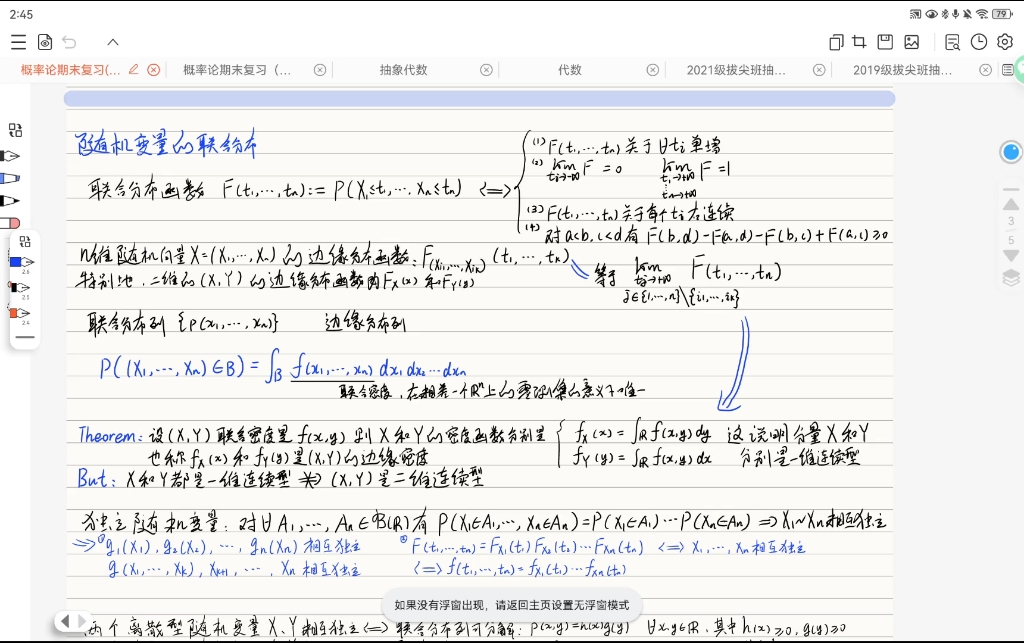 2:45
79
概率论期末复习(...
概率论期末复习（...
抽象代数
代数
2021级拔尖班抽...
2019级拔尖班抽...
随机变量的联合分布
联合分布函数 F(t₁,⋯,tₙ):= P(X₁≤t₁,⋯ Xₙ≤tₙ) ⟺
(1) F(t₁,⋯,tₙ) 关于∀tᵢ 单增
(2) lim_{tᵢ→-∞} F = 0 lim_{t₁→+∞ ⋮ tₙ→+∞} F = 1
(3) F(t₁,⋯,tₙ) 关于每个tᵢ 右连续
(4) 对 a<b, c<d 有 F(b,d)-F(a,d)-F(b,c)+F(a,c)≥0
n维随机向量X=(X₁,⋯,Xₙ)的边缘分布函数: F_{(Xi₁,⋯,Xiₖ)}(t₁,⋯,tₖ)
等于 lim_{tⱼ→+∞ j∈{1,⋯,n}\{i₁,⋯,iₖ}} F(t₁,⋯,tₙ)
特别地，二维的(X,Y)的边缘分布函数为F_X(x)和F_Y(y)
联合分布列 {p(x₁,⋯,xₙ)} 边缘分布列
P((X₁,⋯,Xₙ)∈B) = ∫_B f(x₁,⋯,xₙ) dx₁dx₂⋯dxₙ
联合密度，在相差一个ℝⁿ上的零测集的意义下唯一
Theorem: 设(X,Y)联合密度是 f(x,y) 则 X和Y的密度函数分别是
f_X(x) = ∫_ℝ f(x,y)dy 这说明分量X和Y
也称f_X(x)和f_Y(y)是(X,Y)的边缘密度
f_Y(y) = ∫_ℝ f(x,y)dx 分别是一维连续型
But: X和Y都是一维连续型 ⇏ (X,Y)是二维连续型
独立随机变量: 对∀A₁,⋯,Aₙ∈ℬ(ℝ)有 P(X₁∈A₁,⋯,Xₙ∈Aₙ)=P(X₁∈A₁)⋯P(Xₙ∈Aₙ) ⟹ X₁~Xₙ相互独立
⟹ ① g₁(X₁), g₂(X₂), ⋯, gₙ(Xₙ) 相互独立
② F(t₁,⋯,tₙ) = F_{X₁}(t₁)F_{X₂}(t₂)⋯F_{Xₙ}(tₙ) ⟺ X₁,⋯,Xₙ相互独立
g(X₁,⋯,Xₖ), Xₖ₊₁, ⋯, Xₙ 相互独立
⟺ f(t₁,⋯,tₙ) = f_{X₁}(t₁)⋯f_{Xₙ}(tₙ)
如果没有浮窗出现，请返回主页设置无浮窗模式
两个离散型随机变量X、Y相互独立⟺联合分布列可分解: p(x,y)=h(x)g(y) ∀x,y∈ℝ, 其中h(x)≥0, g(y)≥0
3
5
2.6
2.1
2.4